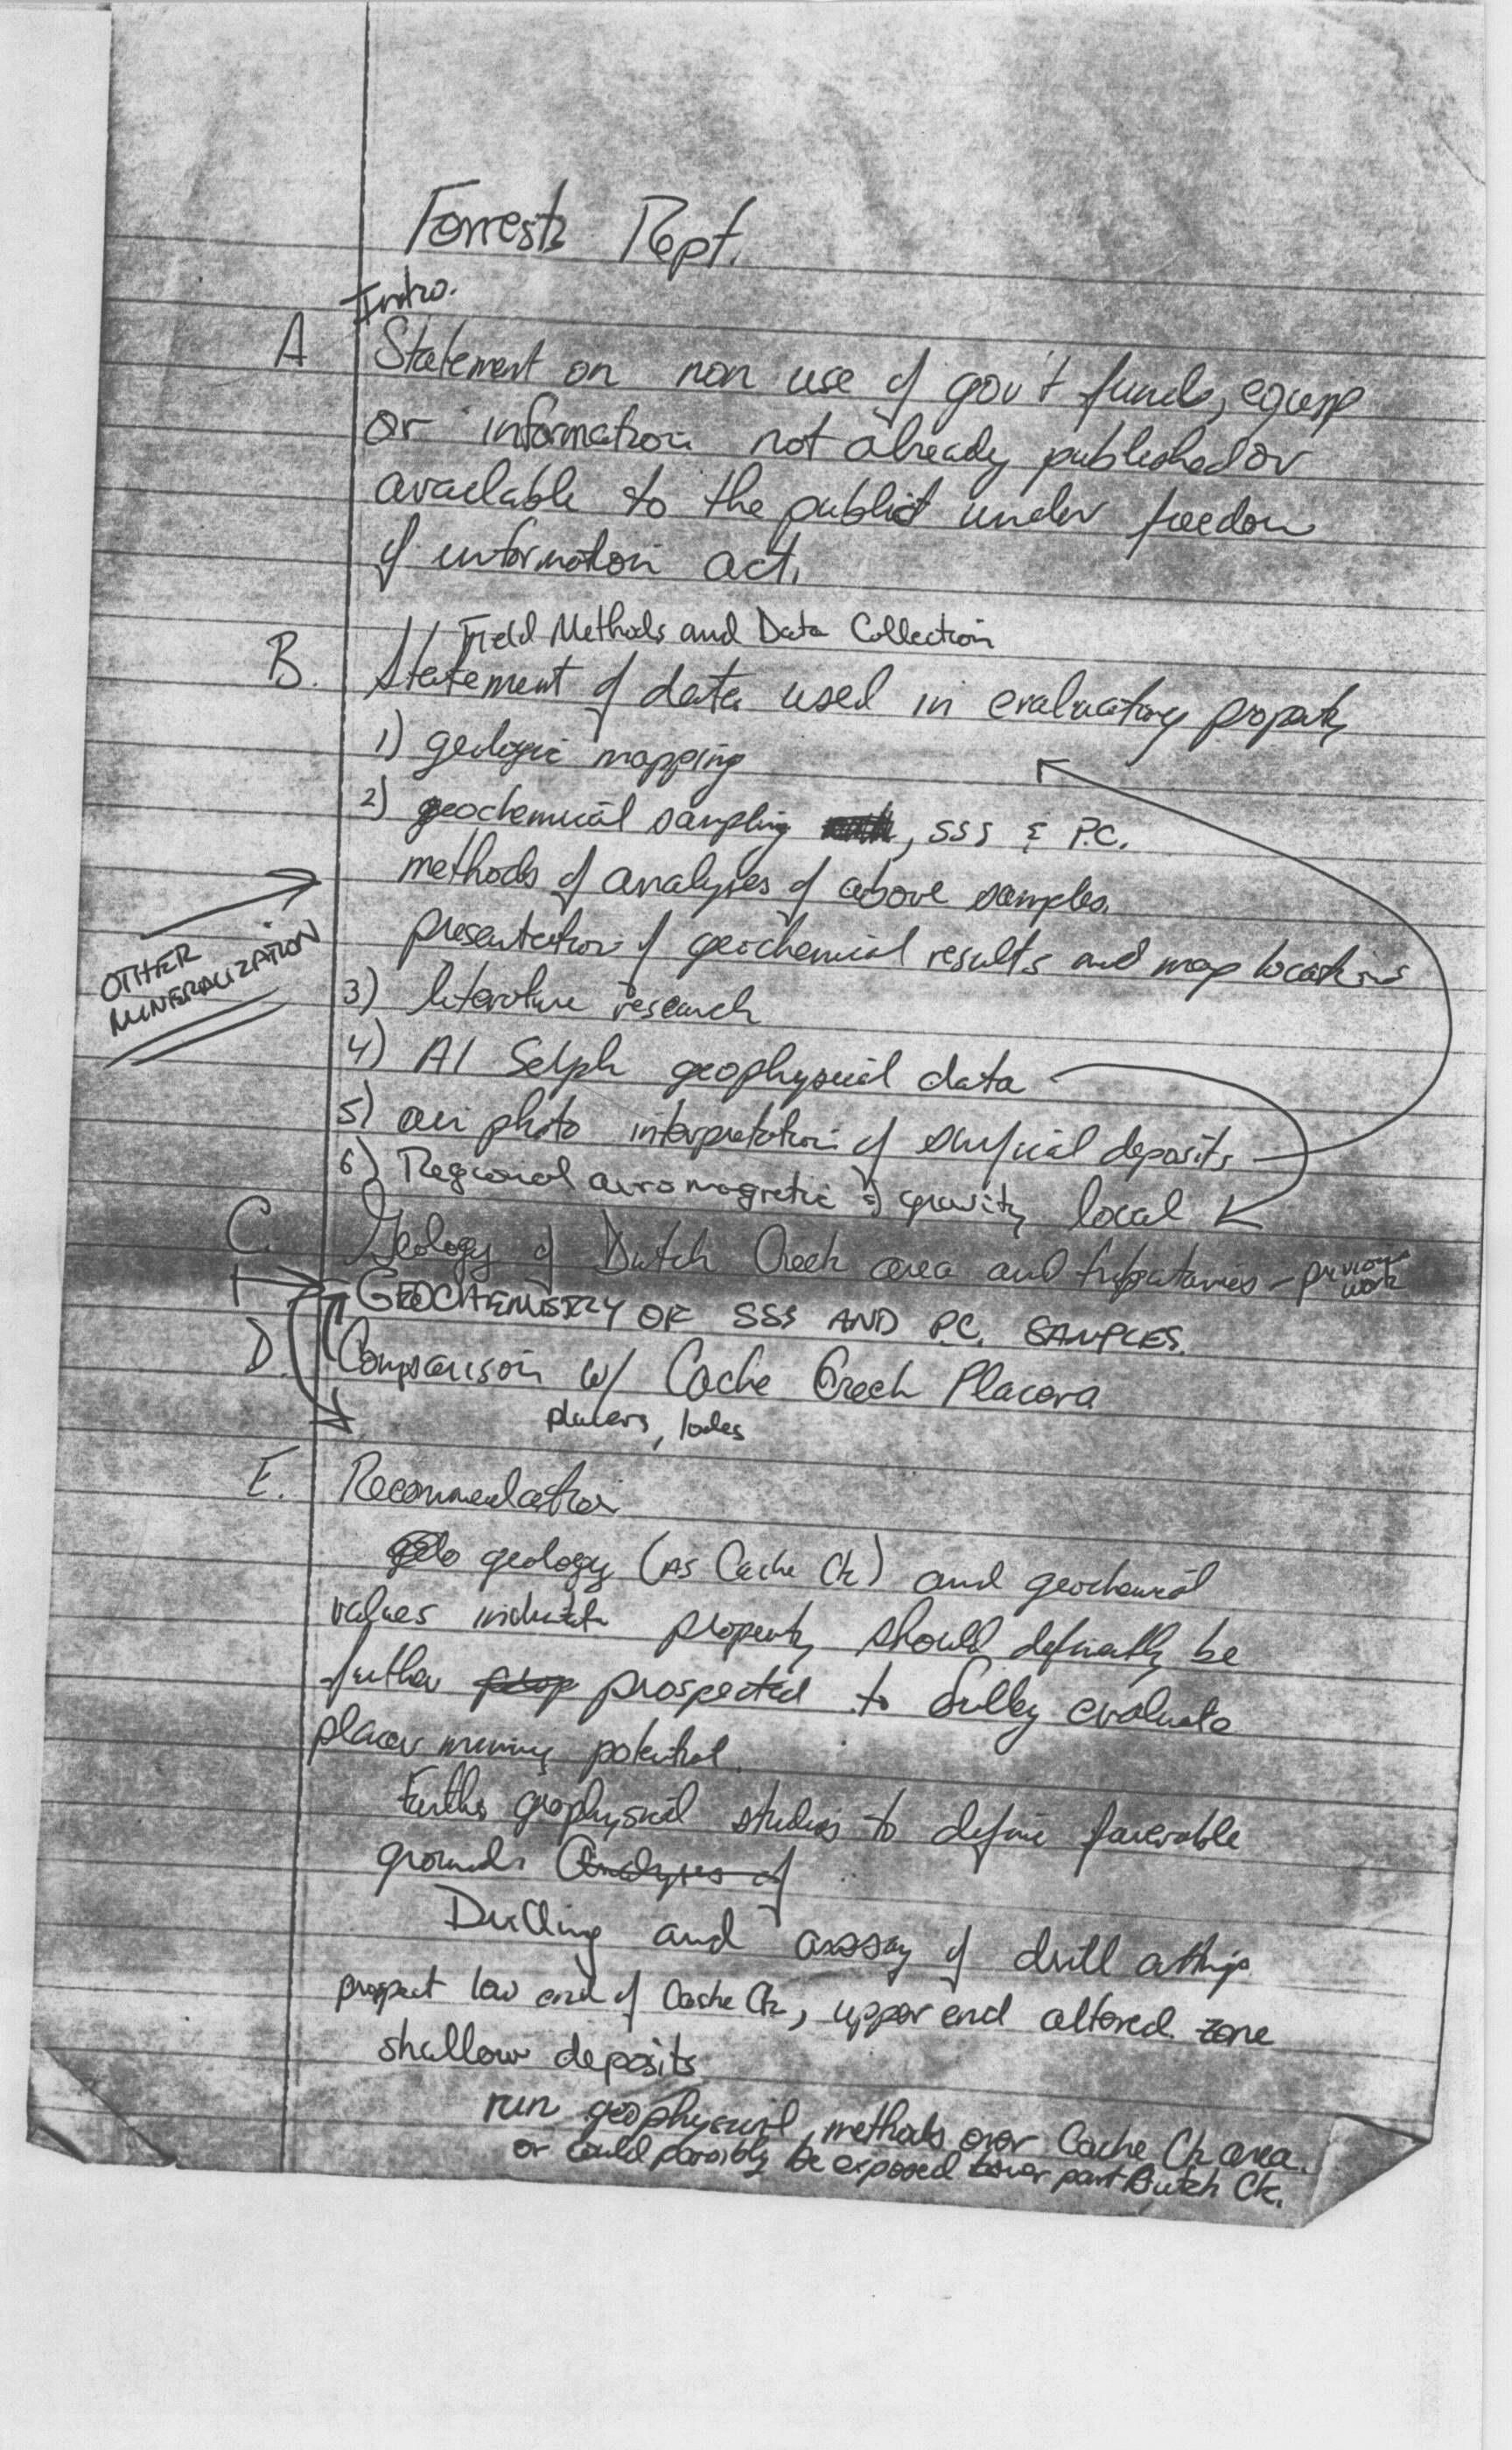 Forrest's Rept.
Intro.
A Statement on non use of gov't funds, equip
or information not already published or
available to the public under freedom
of information act.
Field Methods and Data Collection
B. Statement of data used in evaluating property
1) geologic mapping
2) geochemical sampling , SSS & P.C.
methods of analyses of above samples.
presentation of geochemical results and map locations
OTHER
MINERALIZATION
3) literature research
4) Al Selph geophysical data
5) air photo interpretation of surficial deposits
6) Regional aeromagnetic & gravity local
C. Geology of Dutch Creek area and tributaries - previous
work
GEOCHEMISTRY OF SSS AND P.C. SAMPLES.
D. Comparison w/ Cache Creek Placers
placers, lodes
E. Recommendation
geology (as Cache Ck) and geochemical
values indicate property should definatly be
further prospected to fully evaluate
placer mining potential.
Further geophysical studies to define favorable
grounds Analyses of
Drilling and assay of drill cuttings
prospect low end of Cache Ck, upper end altered zone
shallow deposits
run geophysical methods over Cache Ck area.
or could possibly be exposed lower part Dutch Ck.